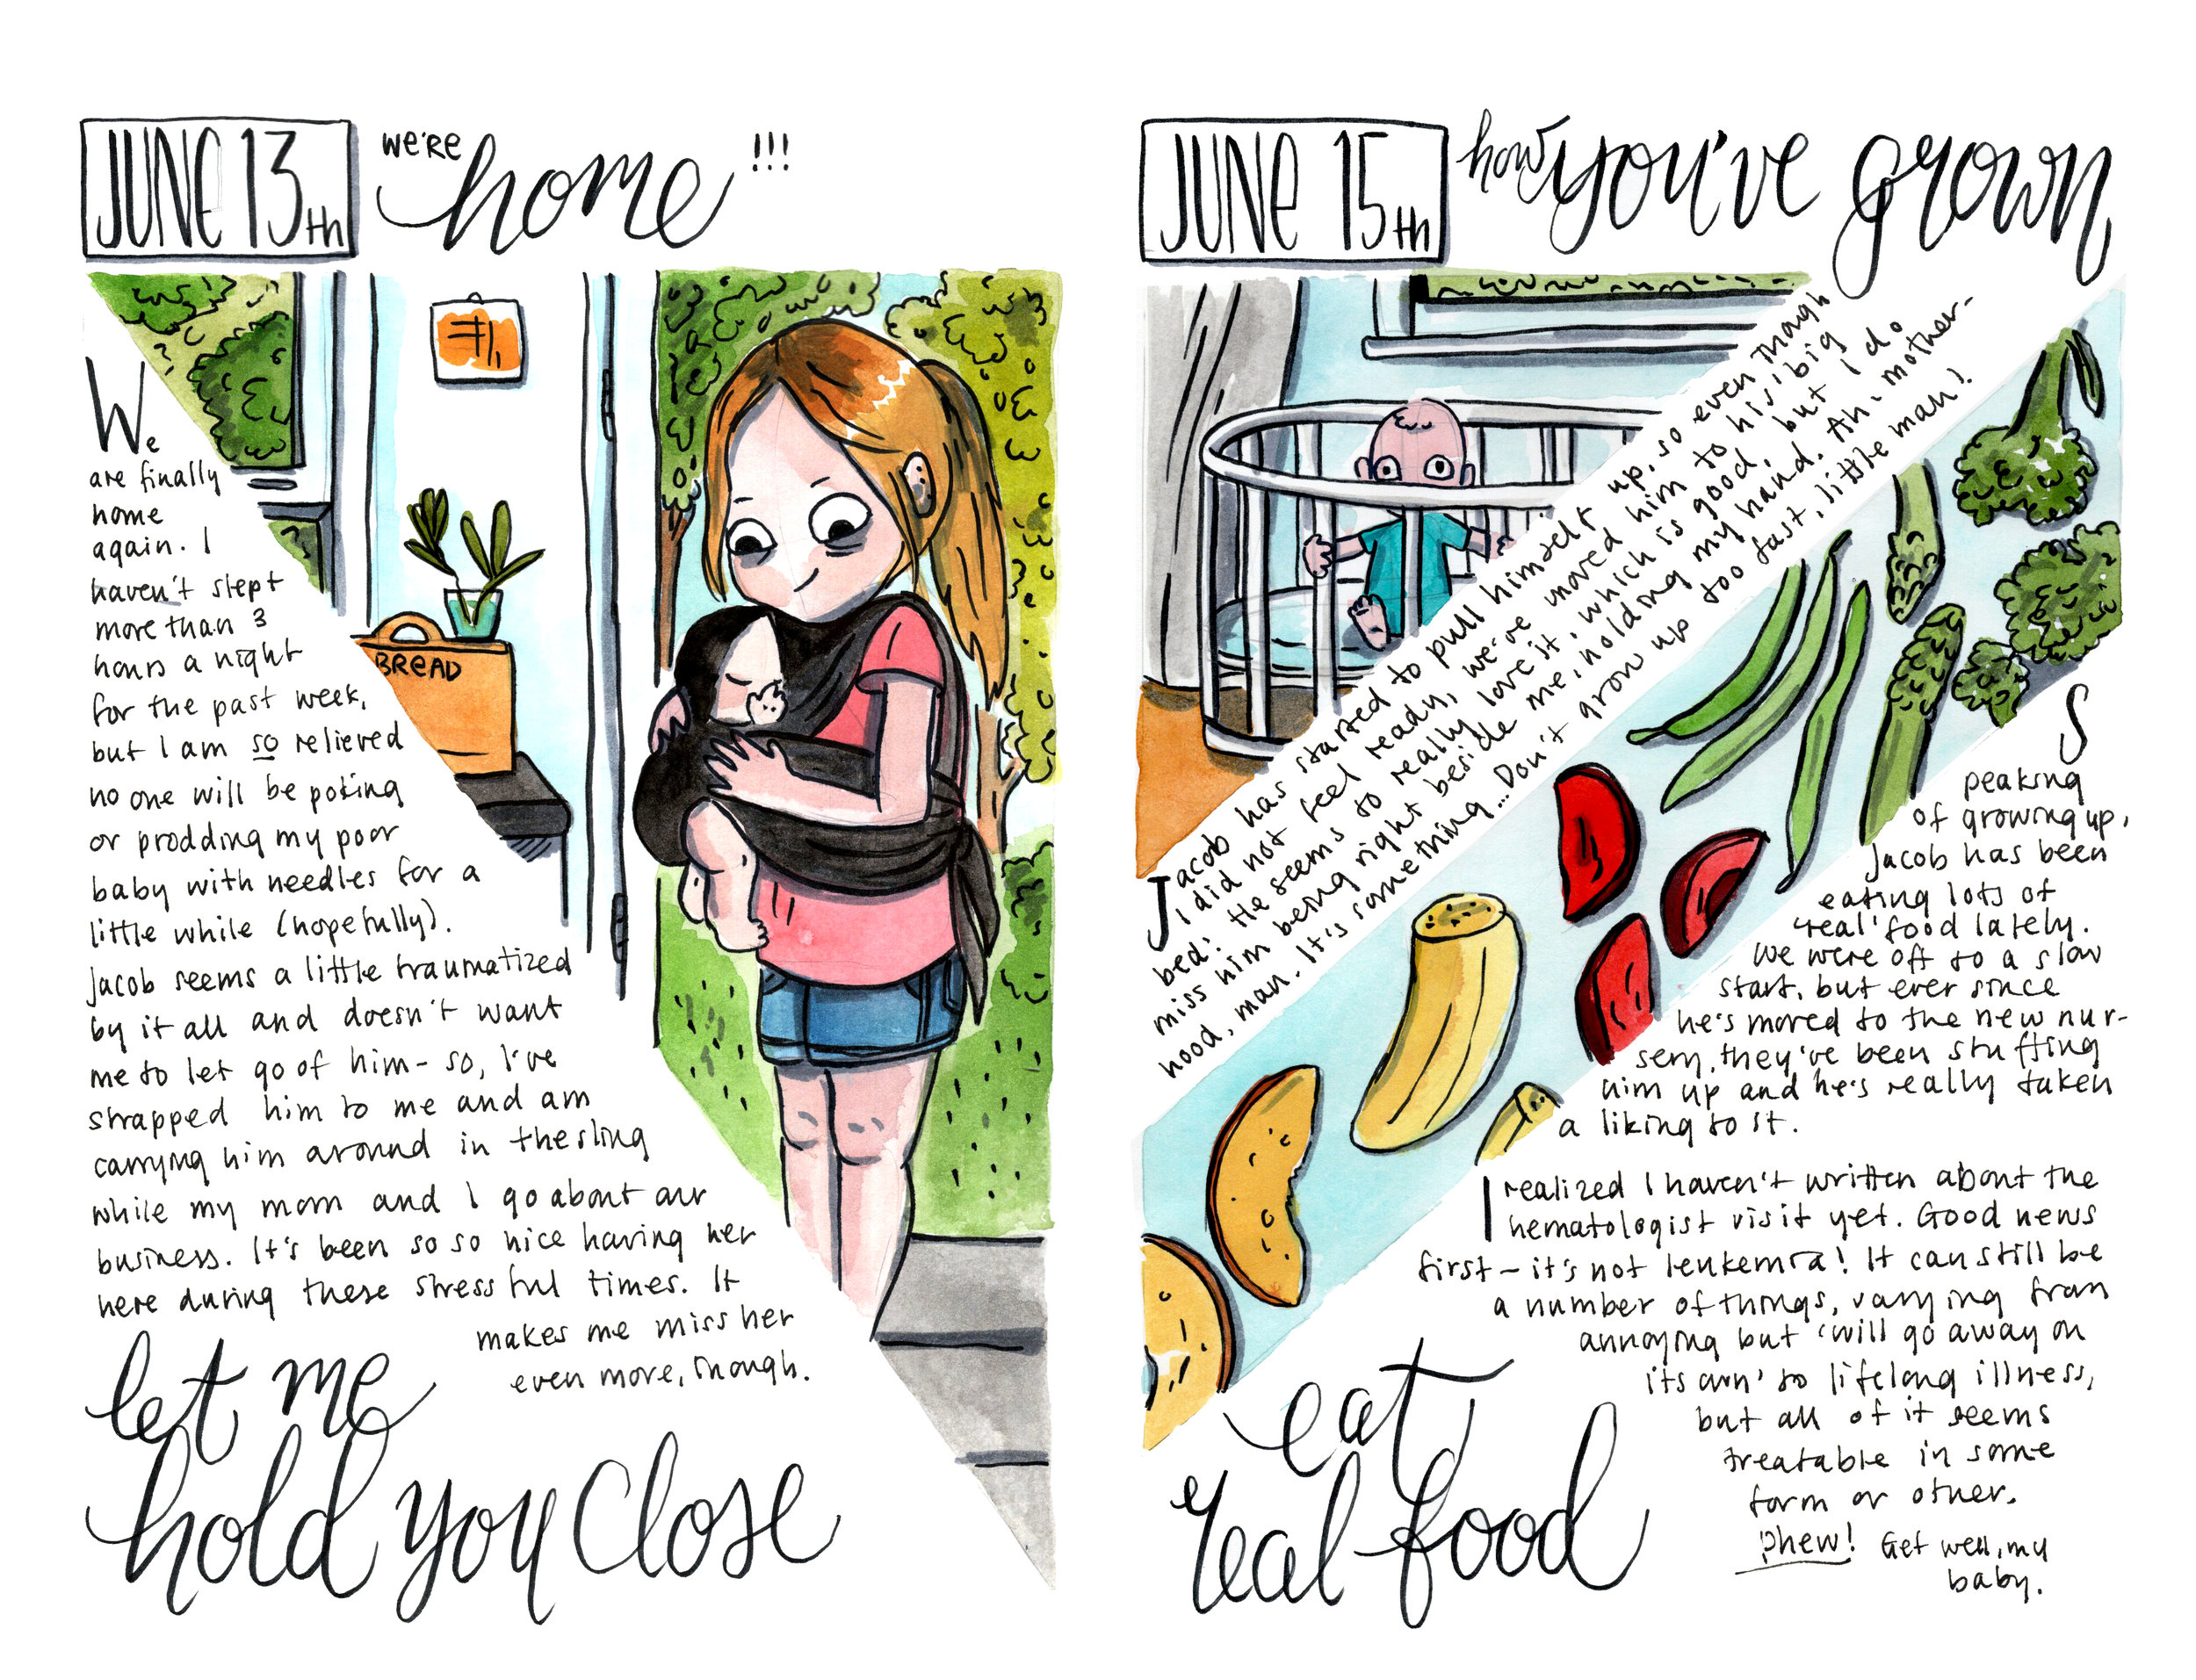 JUNE 13th
we're home!!!
We
are finally
home
again. I
haven't slept
more than 3
hours a night
for the past week,
but I am so relieved
no one will be poking
or prodding my poor
baby with needles for a
little while (hopefully).
Jacob seems a little traumatized
by it all and doesn't want
me to let go of him - so, I've
strapped him to me and am
carrying him around in the sling
while my mom and I go about our
business. It's been so so nice having her
here during these stressful times. It
makes me miss her
even more, though.
BREAD
let me
hold you close
JUNE 15th
how you've grown
Jacob has started to pull himself up, so even though
I did not feel ready, we've moved him to his 'big
bed'. He seems to really love it, which is good, but I do
miss him being right beside me, holding my hand. Ah - mother-
hood, man. It's something... Don't grow up too fast, little man!
Speaking
of growing up,
Jacob has been
eating lots of
'real' food lately.
We were off to a slow
start, but ever since
he's moved to the new nur-
sery, they've been stuffing
him up and he's really taken
a liking to it.
I realized I haven't written about the
hematologist visit yet. Good news
first - it's not leukemia! It can still be
a number of things, varying from
annoying but 'will go away on
its own' to lifelong illness,
but all of it seems
treatable in some
form or other.
Phew! Get well, my
baby.
eat
real food